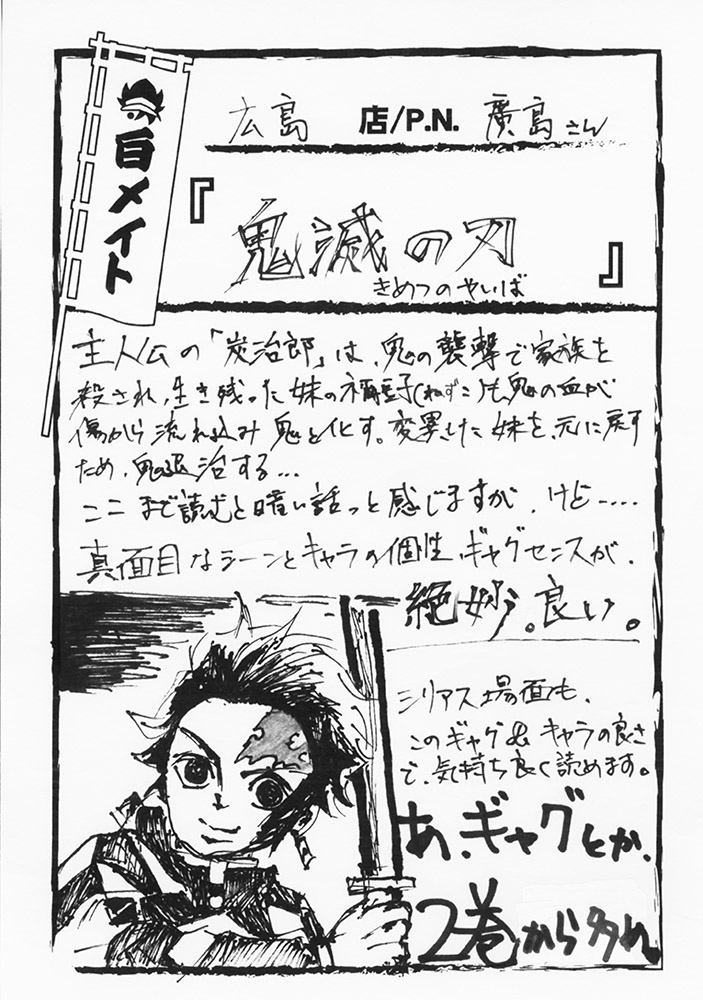 白メイト
広島 店/P.N. 廣島さん
『鬼滅の刃』
きめつのやいば
主人公の「炭治郎」は、鬼の襲撃で家族を
殺され、生き残った妹の禰豆子(ねずこ)も鬼の血が
傷から流れ込み鬼と化す。変異した妹を、元に戻す
ため、鬼退治する…
ここまで読むと暗い話っと感じますが、けど……
真面目なシーンとキャラの個性、ギャグセンスが、
絶妙。良い。
シリアス場面も、
このギャグ&キャラの良さ
で、気持ち良く読めます。
あ、ギャグとか、
2巻から多め。